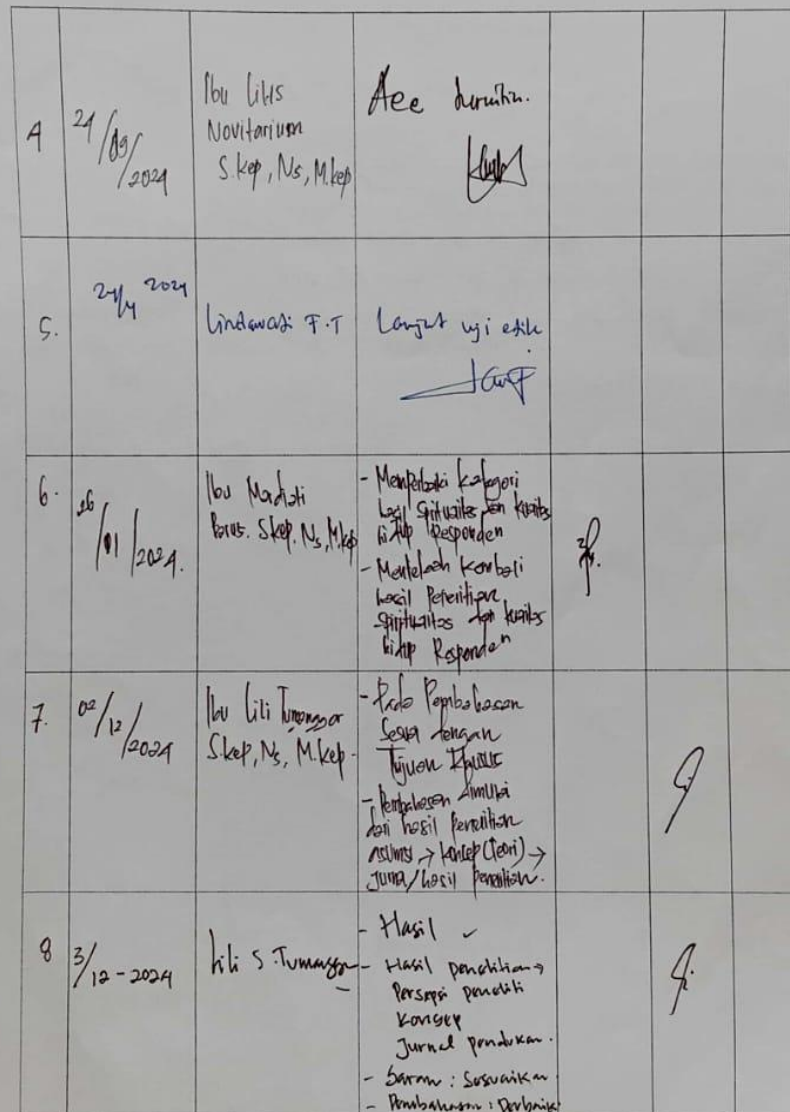 4
24/09/2024
Ibu Lilis
Novitarium
S.kep, Ns, M.kep
Acc
5.
2024
Lindawati F.T
Lanjut uji etik
6.
26/11/2024.
Ibu Mardiati
Barus. S.kep. Ns, M.kep
- Memperbaiki kategori
hasil spiritualitas dan kualitas
hidup Responden
- Menelaah kembali
hasil Penelitian
spiritualitas dan kualitas
hidup Responden
7.
02/12/2024
Ibu Lili Tumanggor
S.kep, Ns, M.kep.
- Pada Pembahasan
Sesuai dengan
Tujuan Khusus
- Pembahasan dimulai
dari hasil penelitian
asumsi → konsep (Teori) →
hasil penelitian.
8
3/12-2024
Lili S. Tumanggor
- Hasil ✓
- Hasil penelitian →
Persepsi peneliti
Konsep
Jurnal pendukung.
- Saran : Sesuaikan
- Pembahasan : Perbaiki